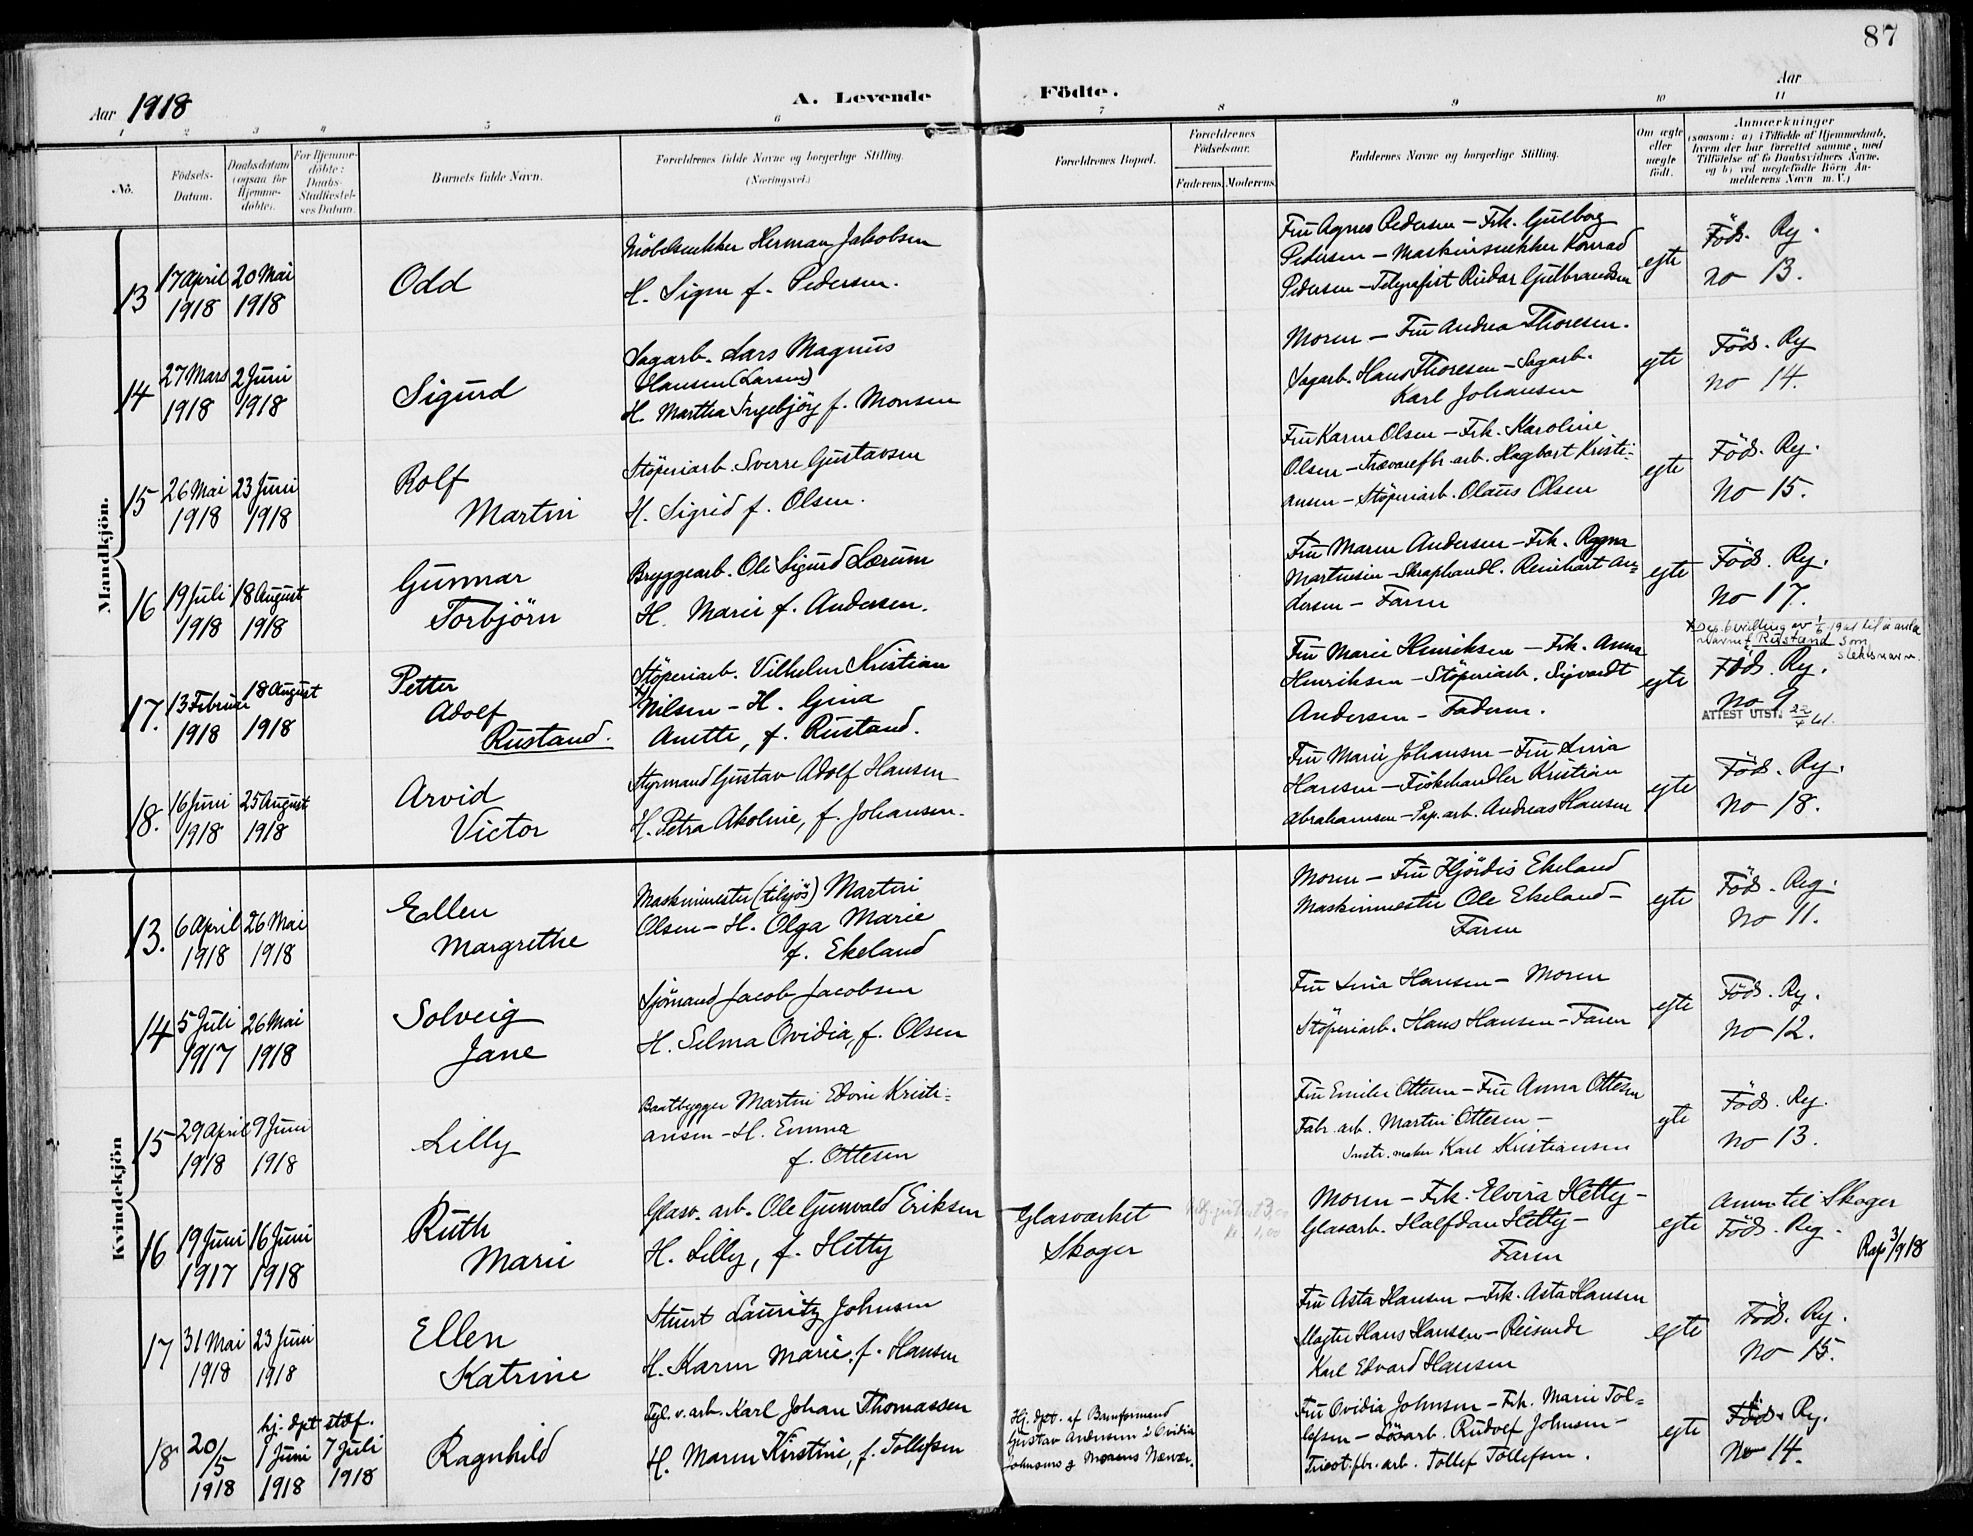 87
Aar 1918
A. Levende Födte.
Aar
1 2 3 4 5 6 7 8 9 10 11
No.
Födsels-
Datum.
Daabsdatum
(ogsaa for
Hjemme-
döbte).
For Hjemme-
döbte:
Daabs-
Stadfæstel-
ses Datum.
Barnets fulde Navn.
Forældrenes fulde Navne og borgerlige Stilling.
(Næringsvei.)
Forældrenes Bopæl.
Forældrenes
Födselsaar.
Faderens. Moderens.
Faddernes Navne og borgerlige Stilling.
Om ægte
eller
uægte
født.
Anmærkninger
(saasom: a) i Tilfælde af Hjemmedaab,
hvem der har forrettet samme, med
Tilföielse af to Daabsvidners Navne,
og b) ved uægtefödte Börn An-
melderens Navn m. V.)
Mandkjön.
13
17 April
1918
20 Mai
1918
Odd
Möbelsnekker Herman Jakobsen
H. Signe f. Pedersen.
Fru Agnes Pedersen – Frk. Gulborg
Pedersen – Maskinsnekker Konrad
Pedersen – Telegrafist Reidar Gulbrandsen
egte
Föds. Reg.
no 13.
14
27 Mars
1918
2 Juni
1918
Sigurd
Sagarb. Lars Magnus
Hansen (Larsen)
H. Martha Ingebjörg f. Monsen
Moren – Fru Andrea Thoresen.
Sagarb. Hans Thoresen – Sagarb.
Karl Johansen
egte
Föds. Reg
no 14.
15
26 Mai
1918
23 Juni
1918
Rolf
Martin
Stöperiarb. Sverre Gustavsen
H. Sigrid f. Olsen.
Fru Karen Olsen – Frk. Karoline
Olsen – Trævarefbr. arb. Hagbart Kristi-
ansen – Stöperiarb. Olaus Olsen
egte
Föds. Reg.
No 15.
16
19 Juli
1918
18 August
1918
Gunnar
Torbjörn
Bryggearb. Ole Sigurd Lærum
H. Marie f. Andersen.
Fru Maren Andersen – Frk. Ragna
Martinsen – Skraphandl. Reinhart An-
dersen – Faren
egte
Föds. Reg.
No 17.
17.
13 Februar
1918
18 August
1918
Petter
Adolf
Rustand.
Stöperiarb. Vilhelm Kristian
x) Nilsen – H. Gina
Anette, f. Rustand.
Fru Marie Henriksen – Frk. Anna
Henriksen – Stöperiarb. Sigvardt
Andersen – Faderen.
egte
x) Dep. bevilling av 1/6 1921 til å anta
navnet Rustand som
slektsnavn.
Föds. Reg.
No 9
ATTEST UTST. 22/4 41.
18.
16 Juni
1918
25 August
1918
Arvid
Victor
Styrmand Gustav Adolf Hansen
H. Petra Akoline, f. Johansen.
Fru Marie Johansen – Fru Lina
Hansen – Fiskehandler Kristian
Abrahamsen – Pap. arb. Andreas Hansen
egte
Föds. Reg.
No 18.
Kvindekjön
13.
6 April
1918
26 Mai
1918
Ellen
Margrethe
Maskinmester (tilsjös) Martin
Olsen – H. Olga Marie
f. Ekeland
Moren – Fru Hjördis Ekeland
Maskinmester Ole Ekeland –
Faren
egte
Föds. Reg.
No 11.
14
5 Juli
1917
26 Mai
1918
Solveig
Jane
Sjömand Jacob Jacobsen
H. Selma Ovidia, f. Olsen
Fru Lina Hansen – Moren
Stöperiarb. Hans Hansen – Faren
egte
Föds. Reg.
No 12.
15
29 April
1918
9 Juni
1918
Lilly
Baatbygger Martin Edvin Kristi-
ansen – H. Emma
f. Ottesen
Fru Emilie Ottesen – Fru Anna Ottesen
Fabr. arb. Martin Ottesen –
Instr. maker Karl Kristiansen
egte
Föds. Reg.
no 13.
16
19 Juni
1917
16 Juni
1918
Ruth
Marie
Glasv. arb. Ole Gunvald Eriksen
H. Lilly, f. Hetty
Glasværket
Skoger
Moren – Frk. Elvira Hetty –
Glasarb. Halfdan Hetty –
Faren
egte
Anm til Skoger
Föds. Reg.
Rap 3/9 18
17
31 Mai
1918
23 Juni
1918
Ellen
Katrine
Stuert Lauritz Johnsen
H. Karen Marie, f. Hansen
Fru Asta Hansen – Frk. Asta Hansen
Magter Hans Hansen – Reisende
Karl Edvard Hansen
egte
Föds. Reg.
No 15.
18
20/5
1918
hj. dpt
1 Juni
1918
staf.
7 Juli
1918
Ragnhild
Tegl. v. arb. Karl Johan Thomassen
H. Maren Kirstine, f. Tollefsen
Hj. dpt. af Barnformand
Gustav Andersen i Ovidia
Johnsens & Morens Nærvær.
Fru Ovidia Johnsen – Frk. Marie Tol-
lefsen – Lösarb. Rudolf Johnsen –
Tricot. fbr. arb. Tollef Tollefsen.
egte
Föds. Reg.
No 14.